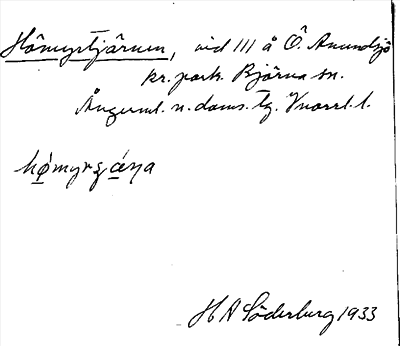 Hömyrtjärnen, vid 111 å Ö. Anundsjö
kr. park. Björna sn.
Ångerml. n. doms. tg. Vnorrl. l.
hǿmyrʂǽṇa
H A Söderburg 1933